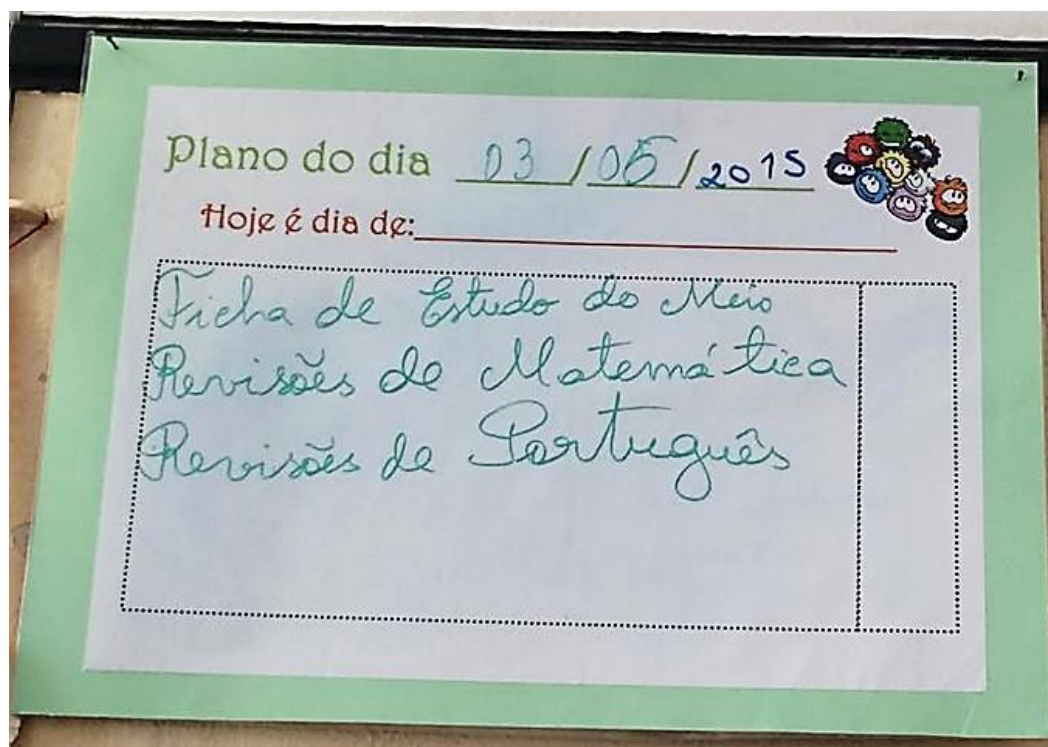 Plano do dia 03/05/2015
Hoje é dia de:
Ficha de Estudo do Meio
Revisões de Matemática
Revisões de Português